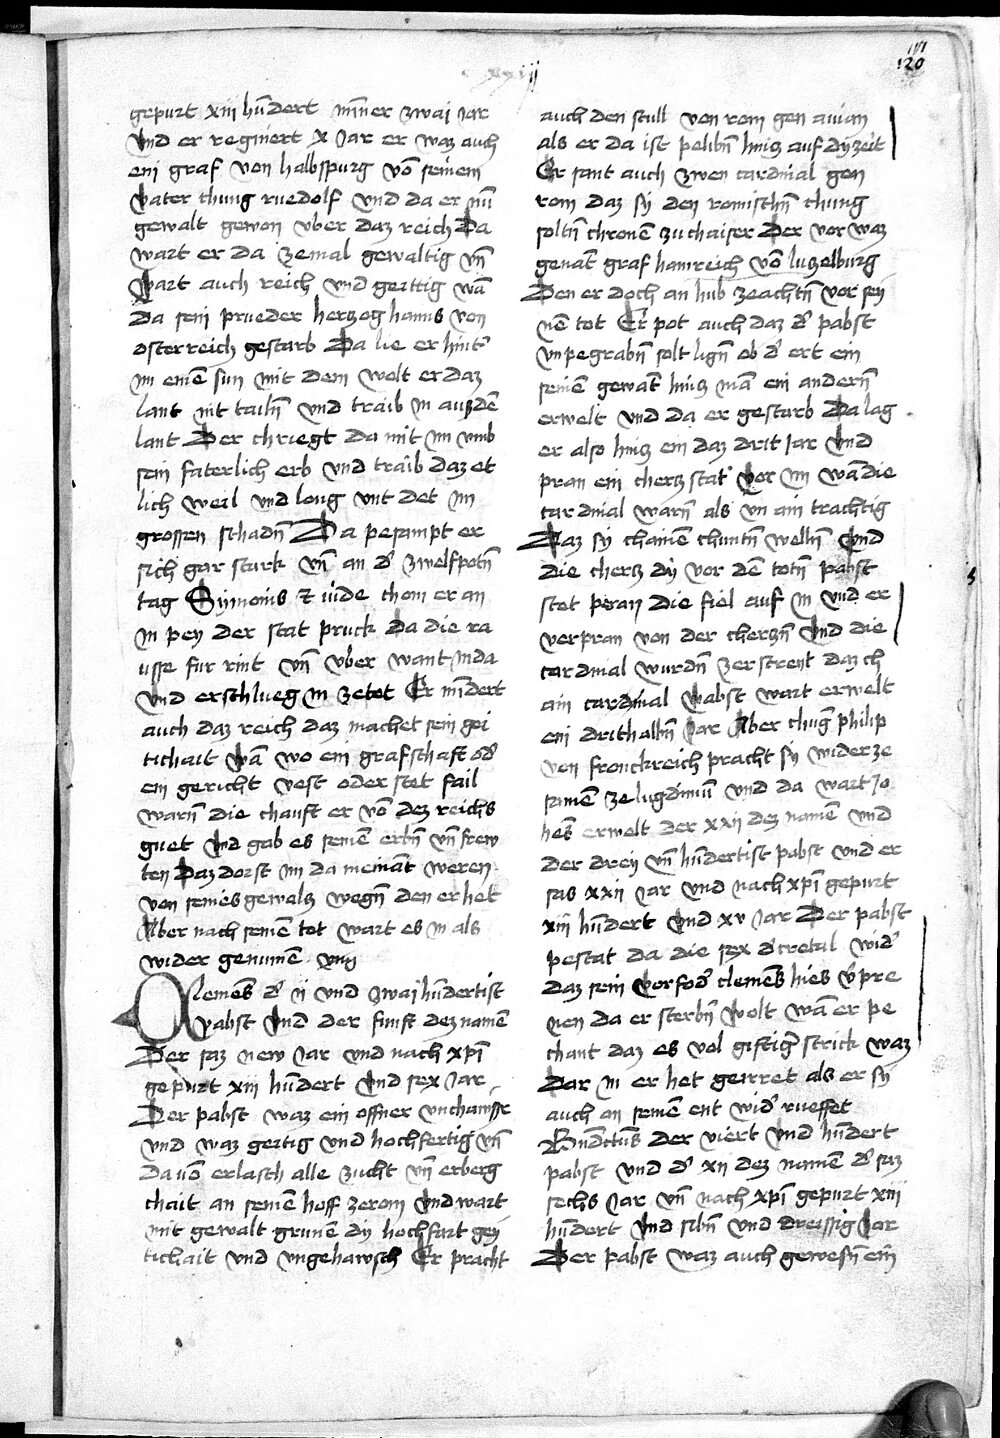 xxiij
120
gepurt xiij hūdert mīner zwai Jar
vnd er regniert x Jar er waz auch
eni graf von halbspurg vō seinem
vater chung ruedolf vnd da er nū
gewalt gewon vber daz reich Da
wart er da zemal gewaltig vn̄
wart auch reich vnd geittig wā
Da seni prueder herzog hanns von
osterreich gestarb Da lie er hint'
im einē sun mit dem wolt er daz
lant nit tailn̄ vnd traib in auz dē
lant Der chriegt da mit im vmb
sein faterlich erb vnd traib daz et
lich weil vnd long vnt det im
grossen schadn̄ Da pesampt er
sich gar stark vn̄ an d' zwelfpotn̄
tag Symonis & iude chom er an
in pey der stat pruck da die ra
usse fur rint vn̄ vber want in da
vnd erschlueg in ze tot Er mīdert
auch daz reich daz machet sein gei
tichait wā wo ein grafschaft od'
ein gericht vest oder stet fail
warn̄ die chauft er vō dez reichs
guet vnd gab es seinē erbn̄ vn̄ frew
ten Daz dorst im da niemāt weren
von seines gewalz wegn̄ den er het
Aber nach seinē tot wart es in als
wider genumē
Clemēs d' ij vnd zwai hūdertist
pabst vnd der funft dez namē
Der saz new Jar vnd nach xp̄i
gepurt xiij hūdert vnd sex Jar
Der pabst waz ein offner vnchawssr
vnd waz geitig vnd hochfertig vn̄
da vō erlasch alle zucht vn̄ erberg
chait an seinē hoff ze rom vnd wart
mit gewalt grunē dy hochfart gey
tichait vnd vngehawsch Er pracht
auch den stull von rom gen auian
als er da ist pelibn̄ hinz auf dy zeit
Er sant auch zwen cardinal gen
rom daz sy den romischn̄ chung
soltn̄ chronē zu chaiser Der vor waz
genāt graf hainreich vō luzelburg
Den er doch an hub ze achtn̄ vor sey
nē tot Er pot auch daz d' pabst
vnpegrabn̄ solt lign̄ ob d' ert ein
seinē gewāt hinz mā ein andern̄
erwelt vnd da er gestarb Da lag
er also hinz ein daz drit Jar vnd
pran ein cherz stat' vor im wā die
cardinal warn̄ als vn ain trachtig
Daz sy chainē chuntn̄ welln̄ vnd
die cherz dy vor dē totn̄ pabst
stet peran die fiel auf in vnd er
verpran von der cherzn̄ vnd die
cardinal wurdn̄ zerstreyt daz ch
ain cardinal pabst wart erwelt
eni drithalbn̄ Jar Aber chuḡ philip
von fronckreich pracht sy wider ze
samē ze lugdinuū vnd da wart Jo
hēs erwelt der xxij dez namē vnd
der drey vn̄ hūdertist pabst vnd er
sas xxij Jar vnd nach xp̄i gepurt
xiij hūdert vnd xv Jar Der pabst
pestat da die sex d'cretal wid'
daz sein vorfod' clemēs hies v'pre
nen da er sterbn̄ wolt wā er pe
chant daz es vol giftig' strick waz
Dar in er het geirret als er sy
auch an seinē ent wid' rueffet
Bnūdictus der viert vnd hūdert
pabst vnd d' xij dez namē d' saz
sechs Jar vn̄ nach xp̄i gepurt xiij
hūdert vnd sibn̄ vnd dreissig Jar
Der pabst waz auch gewesn̄ ein